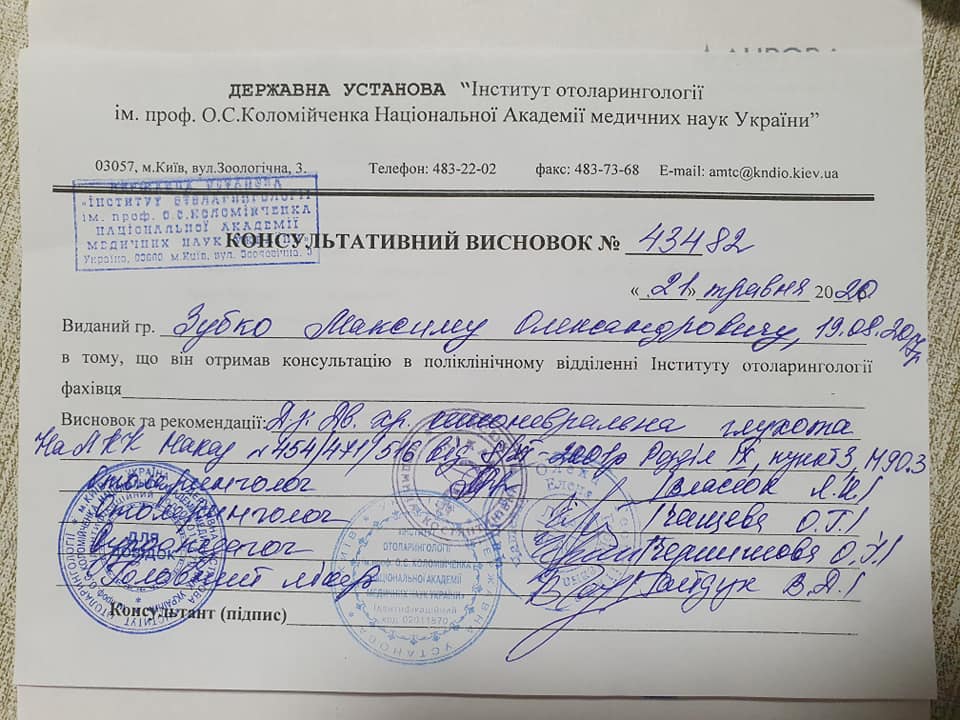 ДЕРЖАВНА УСТАНОВА “Інститут отоларингології
ім. проф. О.С.Коломійченка Національної Академії медичних наук України”
03057, м.Київ, вул.Зоологічна, 3. Телефон: 483-22-02 факс: 483-73-68 E-mail: amtc@kndio.kiev.ua
ДЕРЖАВНА УСТАНОВА
«ІНСТИТУТ ОТОЛАРИНГОЛОГІЇ
ім. проф. О.С.КОЛОМІЙЧЕНКА
НАЦІОНАЛЬНОЇ АКАДЕМІЇ
МЕДИЧНИХ НАУК УКРАЇНИ»
Україна, 03680, м.Київ, вул. Зоологічна, 3
КОНСУЛЬТАТИВНИЙ ВИСНОВОК № 43482
« 21 » травня 2020
Виданий гр. Зубко Максиму Олександровичу, 19.08.2017р
в тому, що він отримав консультацію в поліклінічному відділенні Інституту отоларингології
фахівця
Висновок та рекомендації: Дз: Дв. хр. сенсоневральна глухота
На ЛКК Наказ №454/471/516 від 2001р Розділ ІХ, пункт 3, H90.3
Отоларинголог /Власюк Л.І/
Отоларинголог /Чащева О.Г/
Сурдопедагог О.У/
Головний лікар /Гайдук В.Д/
Консультант (підпис)
ДЛЯ ДОВІДОК
ІНСТИТУТ
ОТОЛАРИНГОЛОГІЇ
проф. О.С.КОЛОМІЙЧЕНКА
НАЦІОНАЛЬНОЇ АКАДЕМІЇ
МЕДИЧНИХ НАУК УКРАЇНИ
Ідентифікаційний
код 02011870